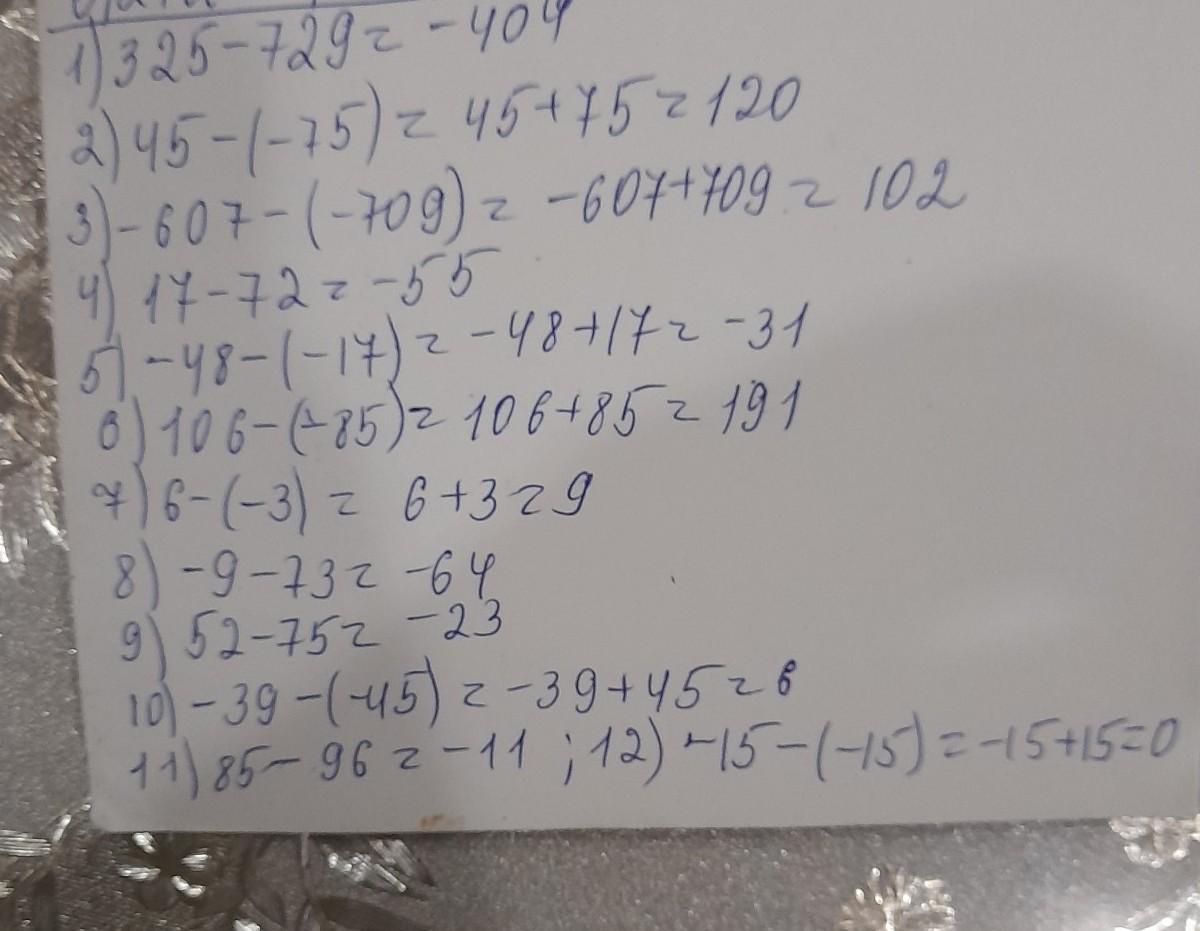 1) 325-729= -404
2) 45-(-75)= 45+75=120
3) -607-(-709)= -607+709= 102
4) 17-72= -55
5) -48-(-17)= -48+17= -31
6) 106-(-85)= 106+85=191
7) 6-(-3)= 6+3=9
8) -9-73= -64
9) 52-75= -23
10) -39-(-45)= -39+45=6
11) 85-96= -11 ; 12) -15-(-15)=-15+15=0